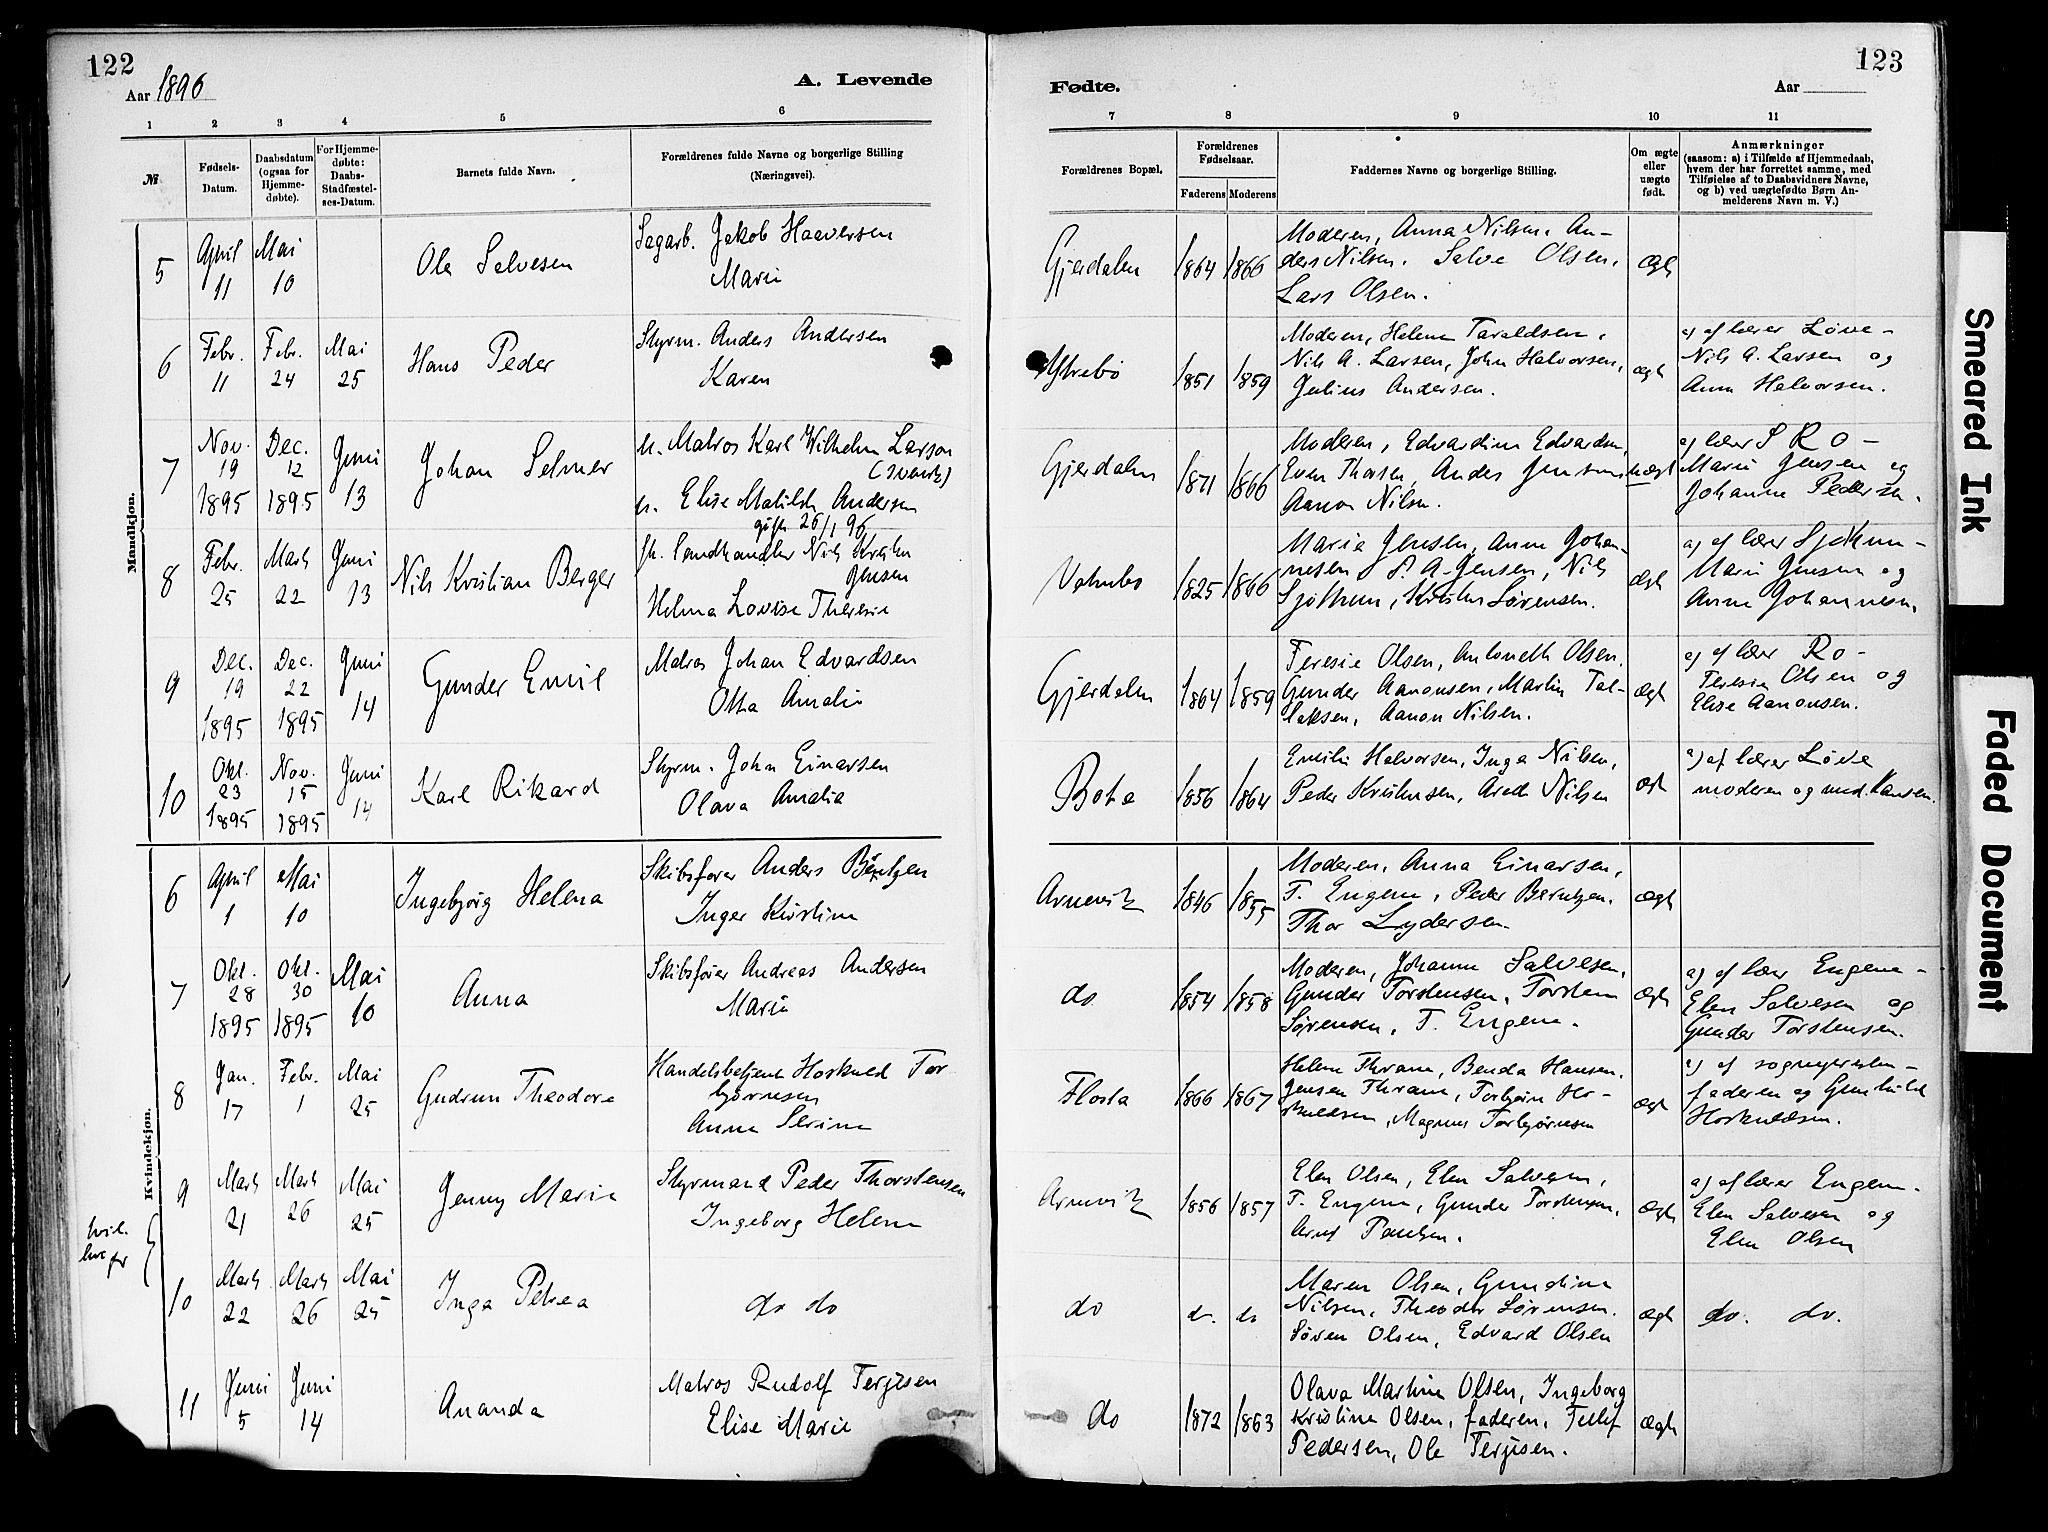 122
Aar 1896
A. Levende
1 2 3 4 5 6
№
Fødsels-
Datum.
Daabsdatum
(ogsaa for
Hjemme-
døbte).
For Hjemme-
døbte:
Daabs-
Stadfæstel-
ses-Datum.
Barnets fulde Navn.
Forældrenes fulde Navne og borgerlige Stilling
(Næringsvei).
Mandkjøn.
5
April
11
Mai
10
Ole Salvesen
Sagarb. Jakob Haaversen
Marie
6
Febr.
11
Febr.
24
Mai
25
Hans Peder
Styrm. Anders Andersen
Karen
7
Nov.
19
1895
Dec.
12
1895
Juni
13
Johan Selmer
u. Matros Karl Wilhelm Larson
u. Elise Matilde Andersen
gift 26/1 96
8
Febr.
25
Marts
22
Juni
13
Nils Kristian Berger
fh. Landhandler Nils Kristen
Jensen
Helma Lovise Theresie
9
Dec.
19
1895
Dec.
22
1895
Juni
14
Gunder Emil
Matros Johan Edvardsen
Otta Amalie
10
Okt.
23
1895
Nov.
15
1895
Juni
14
Karl Rikard
Styrm. John Einarsen
Olava Amalia
Kvindekjøn.
6
April
1
Mai
10
Ingebjørg Helena
Skibsfører Anders Berntzen
Inger Kirstine
7
Okt.
28
1895
Okt.
30
1895
Mai
10
Anna
Skibsfører Andreas Andersen
Marie
8
Jan.
17
Febr.
1
Mai
25
Gudrun Theodore
Handelsbetjent Hoskuld Tor
bjørnsen
Anna Serine
9
Marts
21
Marts
26
Mai
25
Jenny Marie
Styrmand Peder Thorstensen
Ingeborg Helene
10
Marts
22
Marts
26
Mai
25
Inga Petrea
do do
11
Juni
5
Juni
14
Ananda
Matros Rudolf Terjesen
Elise Marie
123
Fødte.
Aar
7 8 9 10 11
Forældrenes Bopæl.
Forældrenes
Fødselsaar.
Faderens Moderens
Faddernes Navne og borgerlige Stilling.
Om ægte
eller
uægte
født.
Anmærkninger
(saasom: a) i Tilfælde af Hjemmedaab,
hvem der har forrettet samme, med
Tilføielse af to Daabsvidners Navne,
og b) ved uægtefødte Børn An-
melderens Navn m. V.)
Gjerdalen
1864 1866
Moderen, Anna Nilsen. An-
ders Nilsen. Salve Olsen,
Lars Olsen.
ægte
Ytrebø
1851 1859
Moderen, Helene Taraldsen,
Nils A. Larsen, John Halvorsen,
Julius Andersen.
ægte
a) af lærer Løve -
Nils A. Larsen og
Anna Halvorsen.
Gjerdalen
1871 1866
Moderen, Edvardine Edvardsen,
Even Thorsen, Anders Jensen
Aanon Nilsen.
uægte
a) lærer S Ro -
Marie Jensen og
Johanne Pedersen.
1825 1866
Marie Jensen, Anne Johan-
nesen, S. A. Jensen, Nils
Kristen Sørensen.
ægte
Marie Jensen og
Anne Johannesen.
Gjerdalen
1864 1859
Teresie Olsen, Antonette Olsen,
Gunder Aanonsen, Martin Tal-
laksen, Aanon Nilsen.
ægte
a) af lærer Ro -
Teresia Olsen og
Elise Aanonsen.
Bota
1856 1864
Emilie Halvorsen, Inga Nilsen,
Peder Kristensen, Aredt Nilsen
ægte
a) af lærer Løve
moderen og mad. Hansen.
Arnevik
1846 1855
Moderen, Anna Einarsen,
T. Engene, Peder Berntzen.
Thor Lydersen.
ægte
do
1854 1858
Moderen, Johanne Salvesen,
Gunder Torstensen, Torsten
Sørensen, T. Engene.
ægte
a) af lærer Engene -
Elen Salvesen og
Gunder Torstensen.
Flosta
1866 1867
Helene Thrane, Benda Hansen.
Jensen Thrane, Torbjørn Ho-
skuldsen, Magnus Torbjørnsen
ægte
a) af sognepresten -
faderen og Gunhild
Hoskuldsen.
Arnevik
1856 1857
Elen Olsen, Elen Salvesen,
T. Engene, Gunder Torstensen,
Arnt Paulsen.
ægte
a) af lærer Engene.
Elen Salvesen og
Elen Olsen
do
do do
Maren Olsen, Gundine
Nilsen, Theodor Sørensen.
Søren Olsen, Edvard Olsen
ægte
do. do.
do
1872 1863
Olava Martine Olsen, Ingeborg
Kristine Olsen, faderen, Tellef
Pedersen, Ole Terjesen.
ægte
Smeared Ink
Faded Document